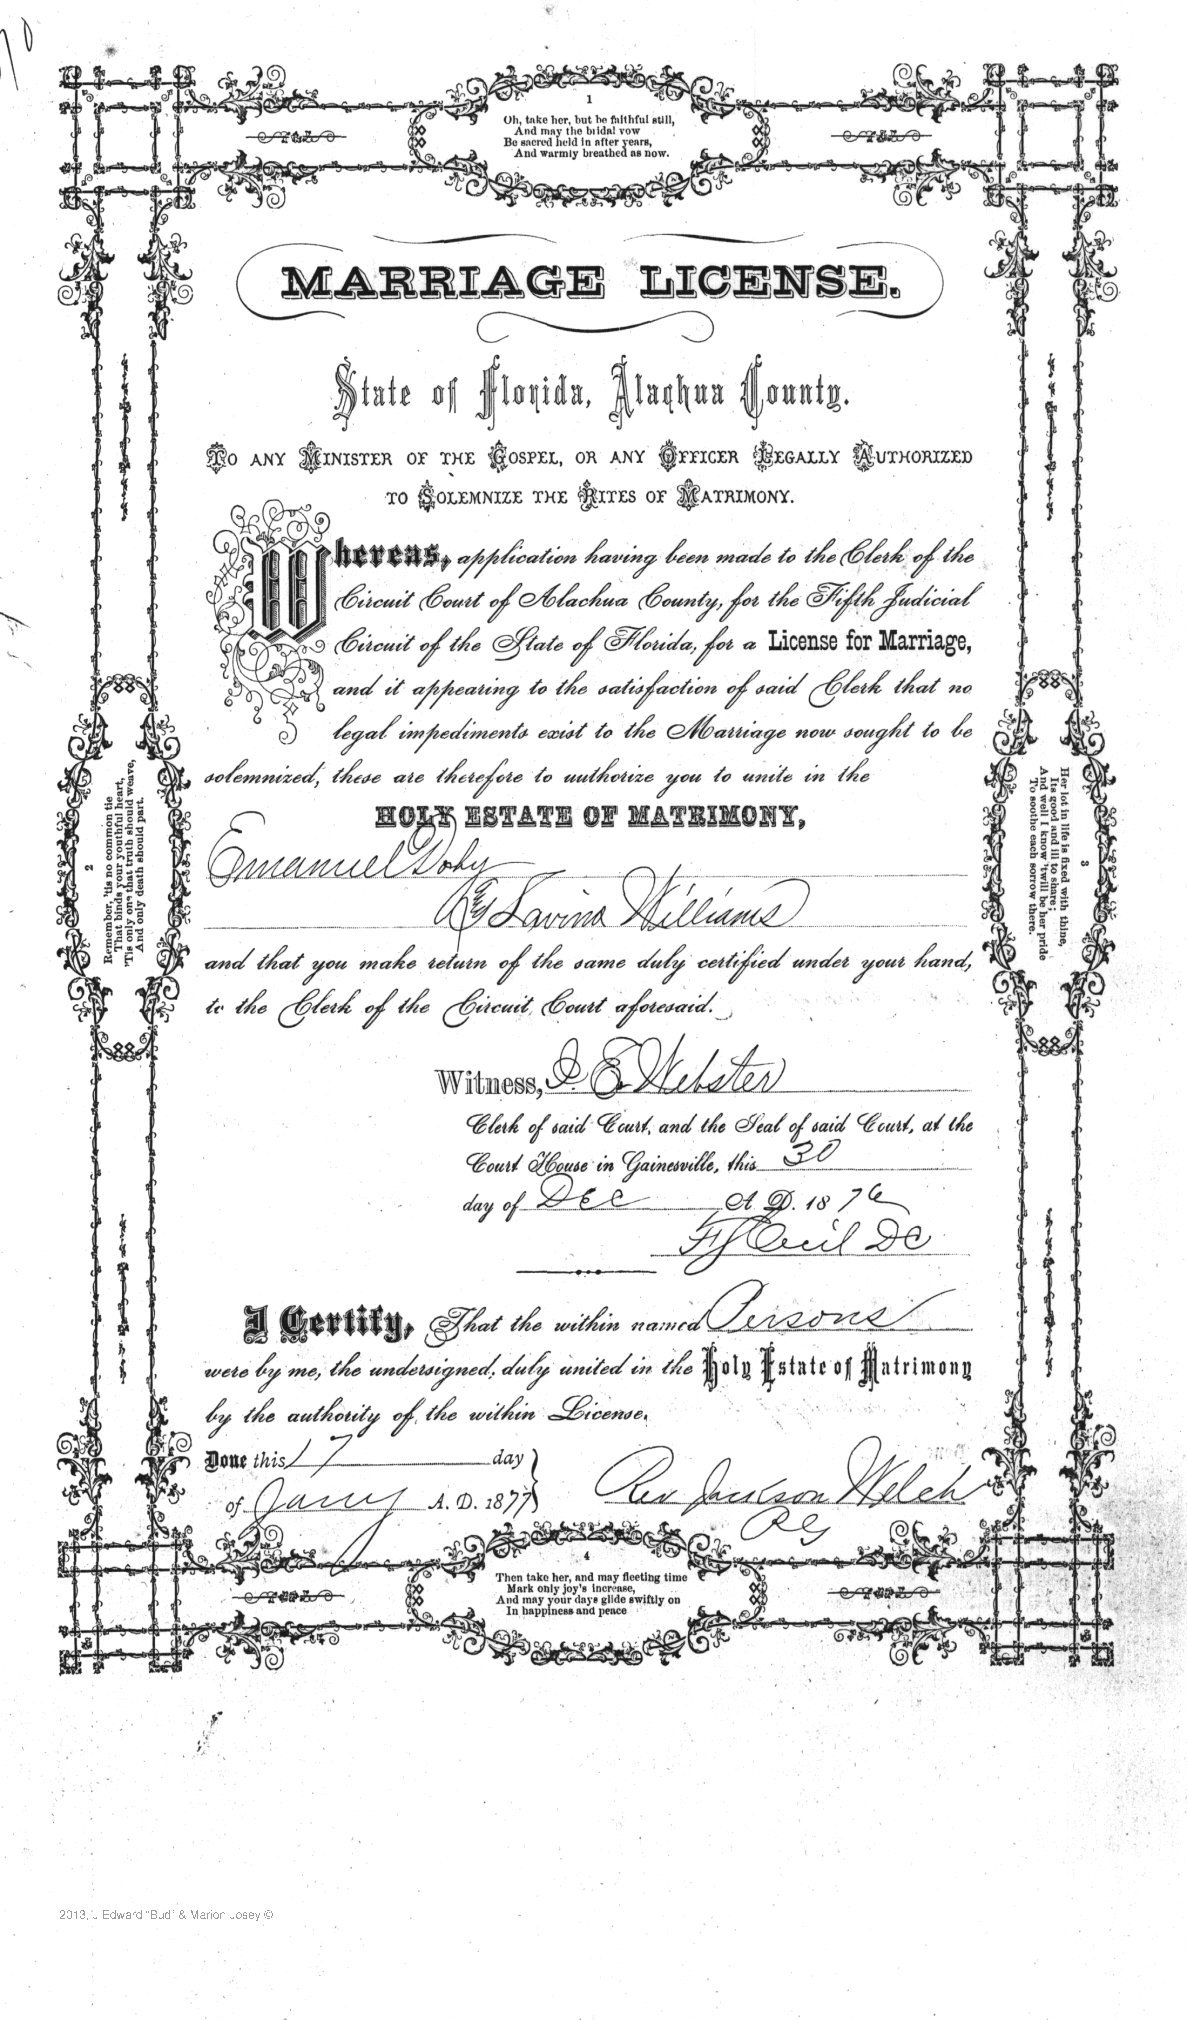 1
Oh, take her, but be faithful still,
And may the bridal vow
Be sacred held in after years,
And warmly breathed as now.
MARRIAGE LICENSE.
State of Florida, Alachua County.
TO ANY MINISTER OF THE GOSPEL, OR ANY OFFICER LEGALLY AUTHORIZED
TO SOLEMNIZE THE RITES OF MATRIMONY.
Whereas, application having been made to the Clerk of the
Circuit Court of Alachua County, for the Fifth Judicial
Circuit of the State of Florida, for a License for Marriage,
and it appearing to the satisfaction of said Clerk that no
legal impediments exist to the Marriage now sought to be
solemnized; these are therefore to authorize you to unite in the
HOLY ESTATE OF MATRIMONY,
Emanuel Doby
Lavina Williams
and that you make return of the same duly certified under your hand,
to the Clerk of the Circuit Court aforesaid.
Witness, J. E. Webster
Clerk of said Court, and the Seal of said Court, at the
Court House in Gainesville, this 30
day of Dec A. D. 1876
Cecil DC
I Certify, That the within named Persons
were by me, the undersigned, duly united in the Holy Estate of Matrimony
by the authority of the within License.
Done this 17 day
of Jany A. D. 1877
Rev Jackson Welch
2
Remember, 'tis no common tie
That binds your youthful heart,
'Tis only one that truth should weave,
And only death should part.
3
Her lot in life is fixed with thine,
Its good and ill to share;
And well I know 'twill be her pride
To soothe each sorrow there.
4
Then take her, and may fleeting time
Mark only joy's increase,
And may your days glide swiftly on
In happiness and peace
2013, J Edward "Bud" & Marion Josey ©